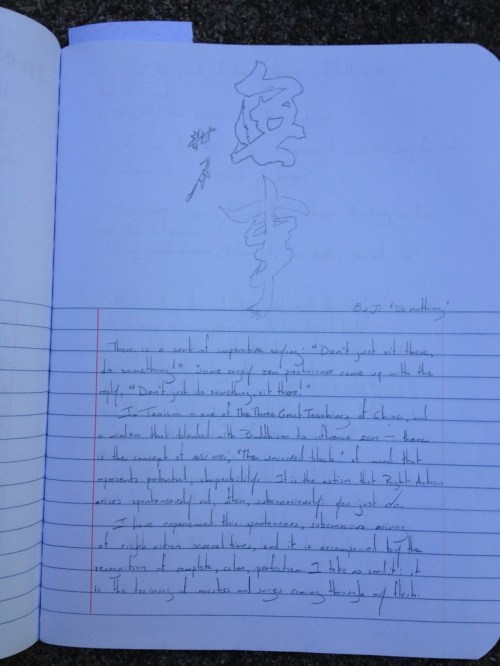 無
事
Bu Ji 'Do nothing'
There is a sort of imperative saying: "Don't just sit there,
do something!" Some crazy zen practitioner came up with the
reply, "Don't just do something, sit there!"
In Taoism - one of The Three Great Teachings of China, and
a wisdom that blended with Buddhism to influence zen - there
is the concept of wu wei; "The uncarved block" of wood that
represents potential, adaptability. It is the notion that Right Action
arises spontaneously and, then, subconsciously; you just do.
I have experienced this spontaneous, subconscious arising
of right action several times, and it is accompanied by the
recognition of complete, calm, perfection. I take no credit: it
is the training of minutes and coming through my flesh.